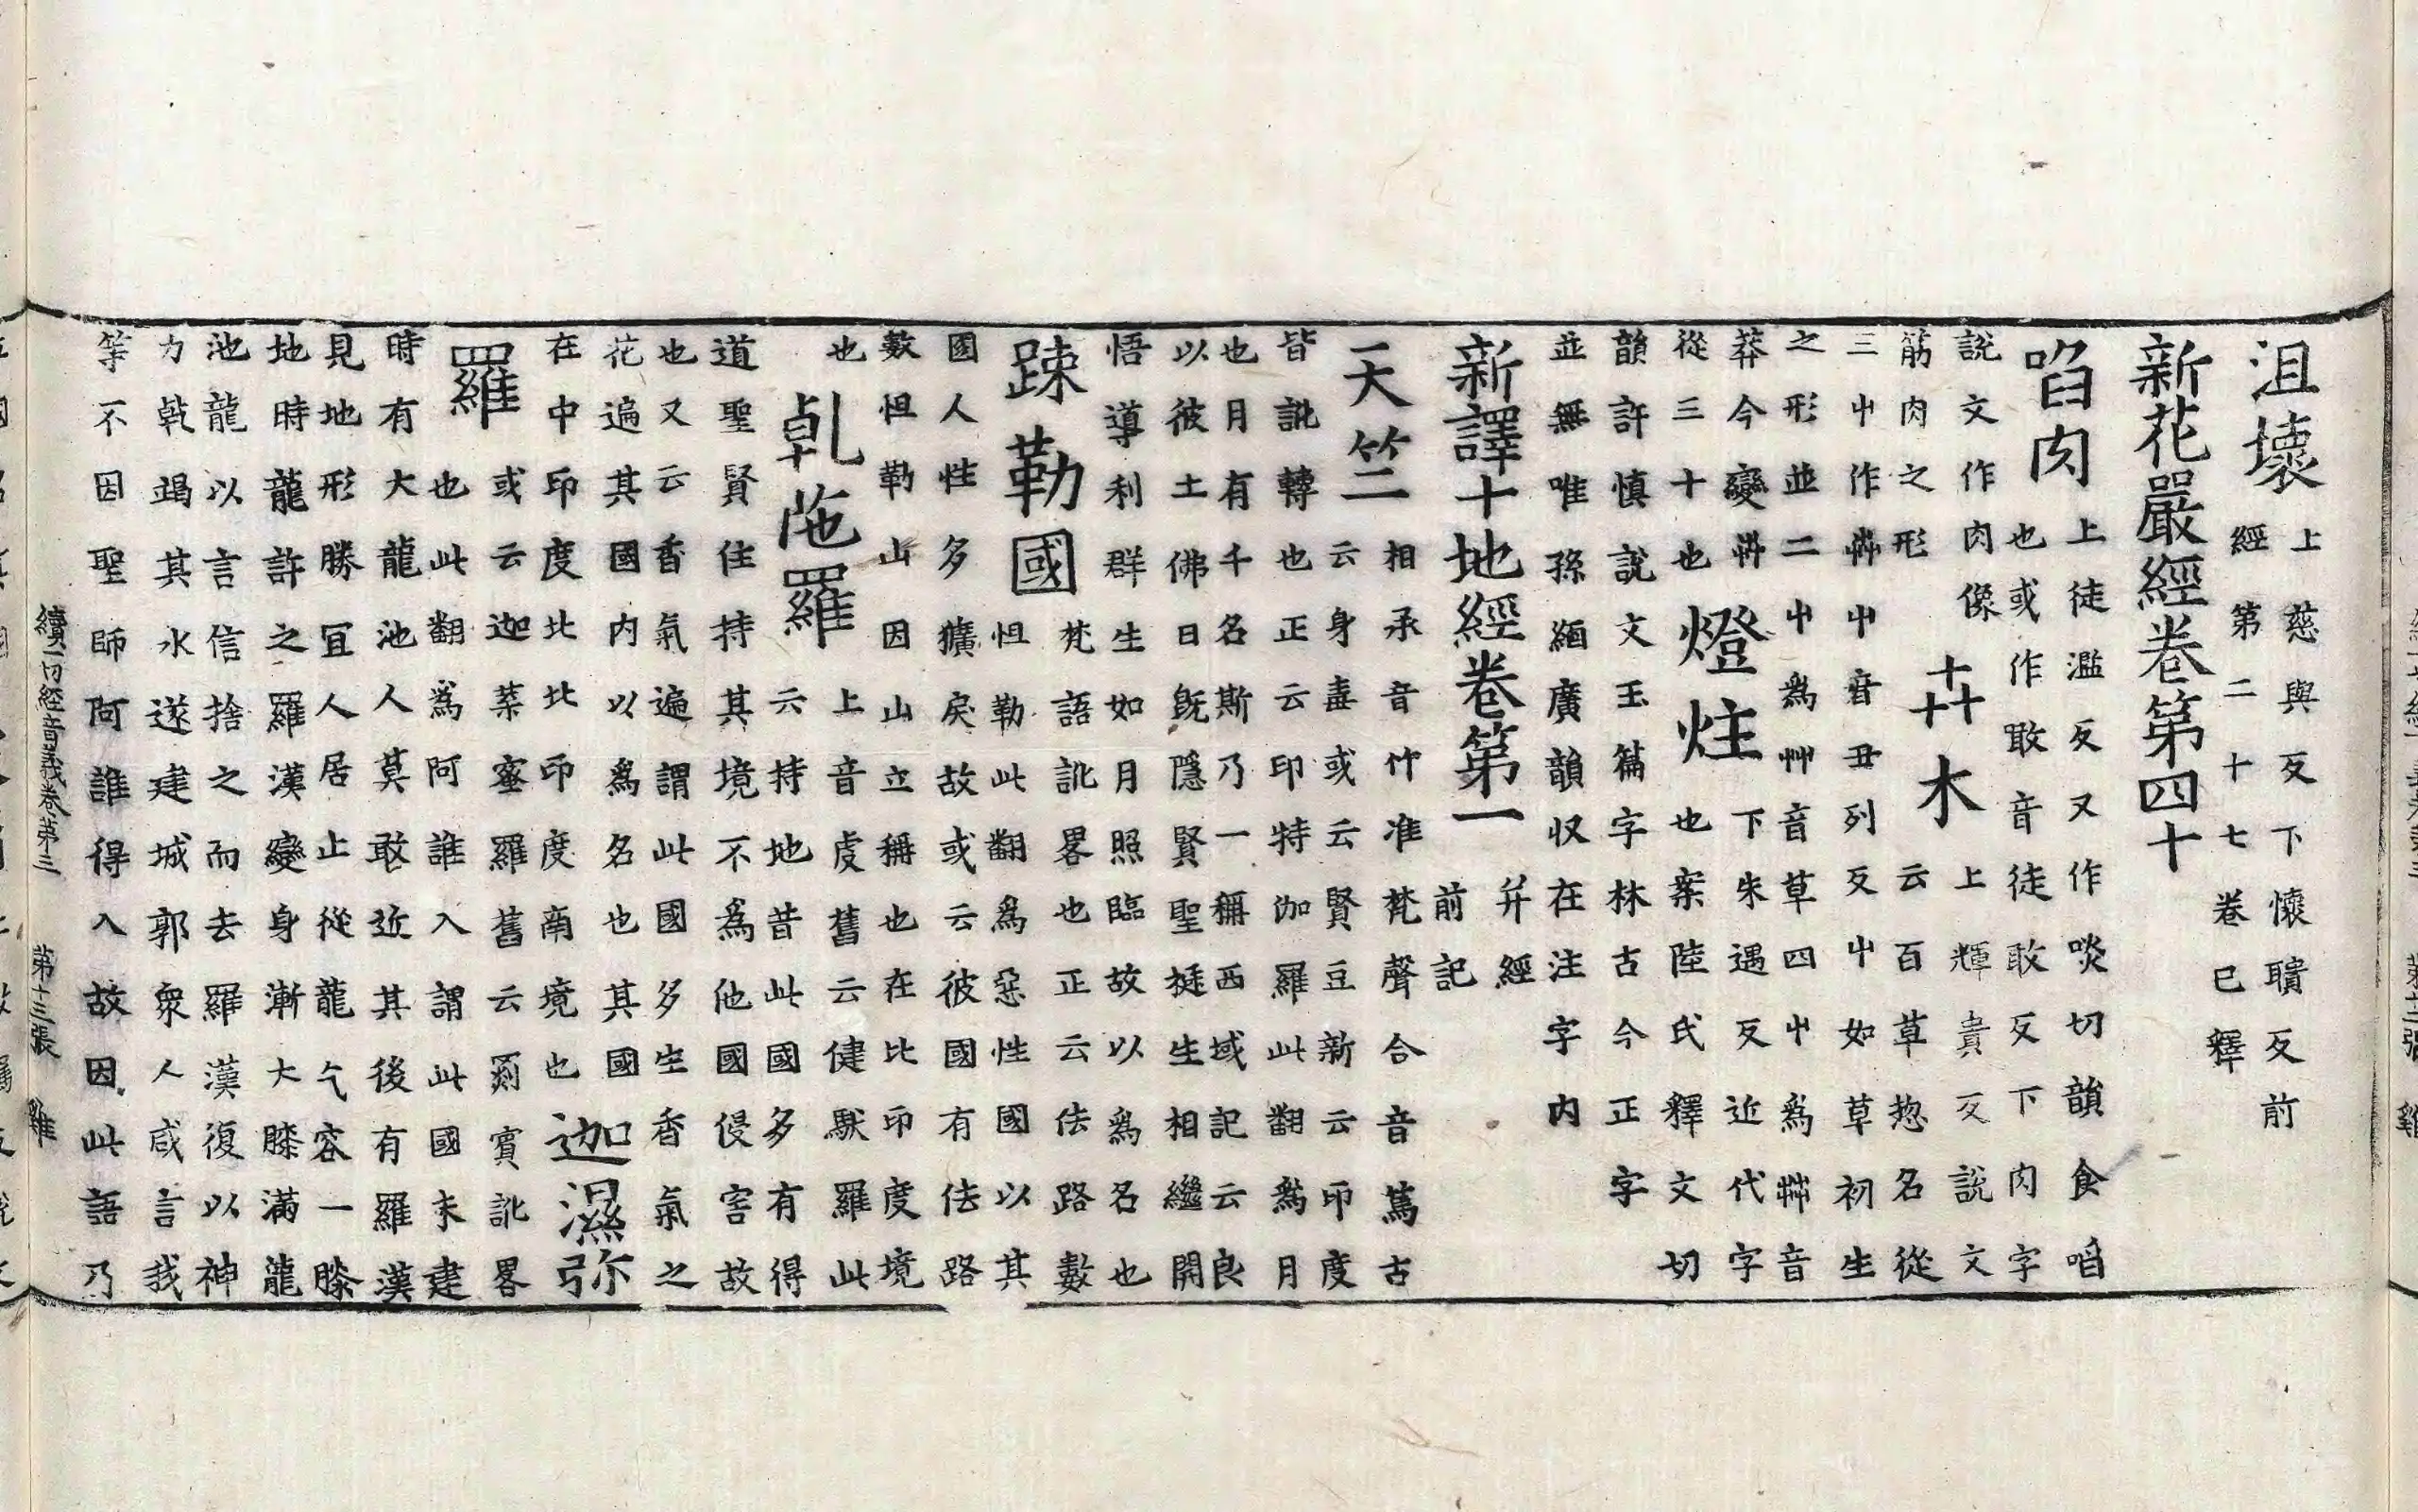 沮壞 上慈與反下懷聵反前
經第二十七卷已釋
新花嚴經卷第四十
啗肉 上徒濫反又作啖切韻食啗
也或作敢音徒敢反下肉字
說文作肉像
筋肉之形
芔木 上輝貴反說文
云百草惣名從
三屮作芔屮音丑列反屮如草初生
之形並二屮為艸音草四屮為茻音
莽今變卉
從三十也
燈炷 下朱遇反近代字
也案陸氏釋文切
韻許慎說文玉篇字林古今正字
並無唯孫緬廣韻収在注字内
新譯十地經卷第一 并經
前記
天竺 相承音竹准梵聲合音篤古
云身毒或云賢豆新云印度
皆訛轉也正云印特伽羅此翻為月
也月有千名斯乃一稱西域記云良
以彼土佛日既隱賢聖挺生相繼開
悟導利群生如月照臨故以為名也
踈勒國 梵語訛畧也正云佉路數
怛勒此翻為惡性國以其
國人性多獷戾故或云彼國有佉路
數怛勒山因山立稱也在北印度境
也
乹陁羅 上音虔舊云健馱羅此
云持地昔此國多有得
道聖賢住持其境不為他國侵害故
也又云香氣遍謂此國多生香氣之
花遍其國内以為名也其國
在中印度北北印度南境也
迦濕弥
羅 或云迦葉蜜羅舊云罽賓訛畧
也此翻為阿誰入謂此國未建
時有大龍池人莫敢近其後有羅漢
見地形勝冝人居止從龍乞容一膝
地時龍許之羅漢變身漸大膝滿龍
池龍以言信捨之而去羅漢復以神
力乾竭其水遂建城郭衆人咸言我
等不因聖師阿誰得入故因此語乃
續一切經音義卷第三 第十三張 雞